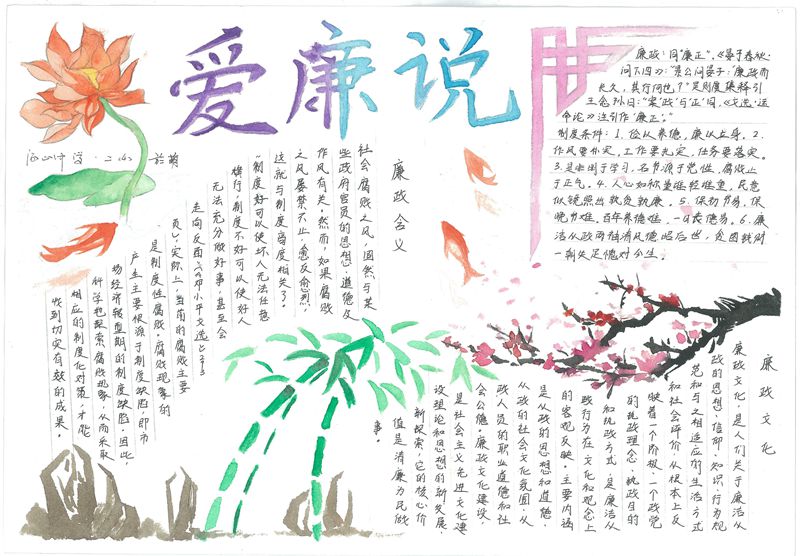 爱廉说
廉政:同"廉正"。《晏子春秋·
问下四》:"景公问晏子:'廉政而
长久,其行何也?'"吴则虞集释引
王念孙曰:"案'政'与'正'同,《文选·运
命论》注引作'廉正'。"
制度条件:1.俭以养德,廉以立身。2.
作风要朴实,工作要扎实,任务要落实。
3.是非出于学习,名节源于党性,腐败止
于正气。4.人心如称量谁轻谁重,民意
似镜照出孰贪孰廉。5.保初节易,保
晚节难,百年养德难,一旦丧德易。6.廉
洁从政两袖清风德昭后世,贪图
一朝失足愧对今生。
廉政含义
社会腐败之风,固然与某
些政府官员的思想、道德及
作风有关。然而,如果腐败
之风屡禁不止、愈反愈烈,
这就与制度高度相关了。
"制度好可以使坏人无法任意
横行,制度不好可以使好人
无法充分做好事,甚至会
走向反面"(《邓小平文选》333
页)。实际上,当前的腐败主要
是制度性腐败,腐败现象的
产生主要根源于制度缺陷,即市
场经济转型期的制度缺陷,因此,
科学地探索腐败现象,从而采取
相应的制度化对策,才能
收到切实有效的成果。
廉政文化
廉政文化,是人们关于廉洁从
政的思想、信仰、知识、行为规
范和与之相适应的生活方式
和社会评价,从根本上反
映着一个阶级、一个政党
的执政理念、执政目的
和执政方式,是廉洁从
政行为在文化和观念上
的客观反映。主要内涵
是从政的思想和道德、
从政的社会文化氛围、从
政人员的职业道德和社
会公德。廉政文化建设,
是社会主义先进文化建
设理论和思想的新发展、
新探索,它的核心价
值是清廉为民做
事。